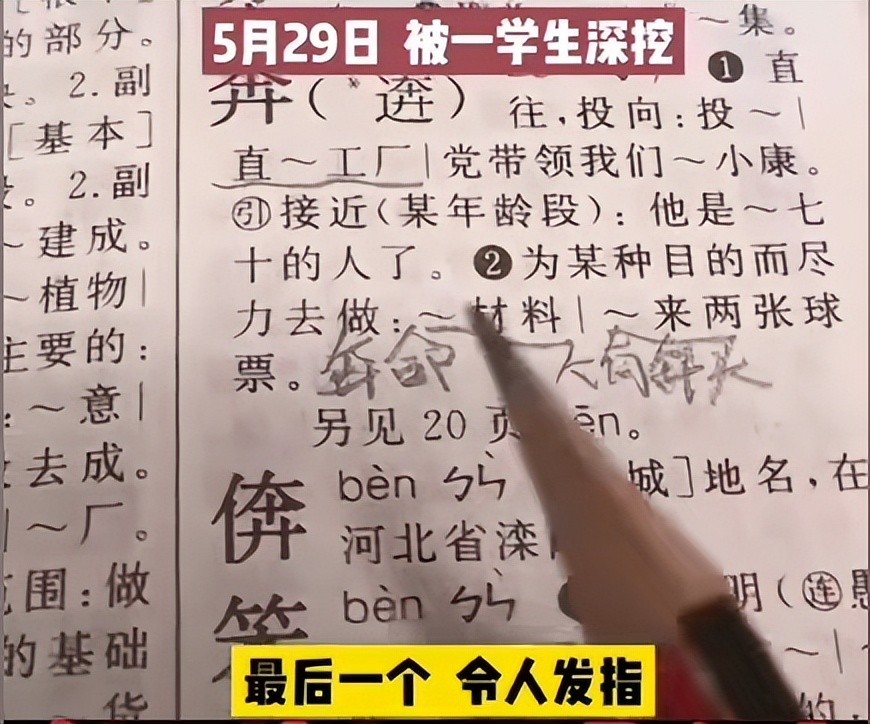 5月29日 被一学生深挖
的部分。
2.副
[基本]
2.副
～建成。
～植物|
主要的：
：～意|
去成。
|～厂。
范围：做
的基础
～集。
奔(*逩) ❶直
往，投向：投～|
直～工厂|党带领我们～小康。
㊁接近(某年龄段)：他是～七
十的人了。❷为某种目的而尽
力去做：～材料|～来两张球
票。奔命
另见 20 页 ēn。
倴 bèn ㄅㄣˋ 城]地名，在
河北省滦
笨 bèn ㄅㄣˋ 明(㊀
～|
的，
最后一个 令人发指